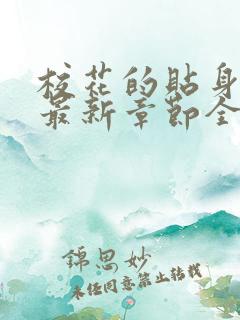 校花的貼身
最新章節全
錦思妙
未经同意禁止转载